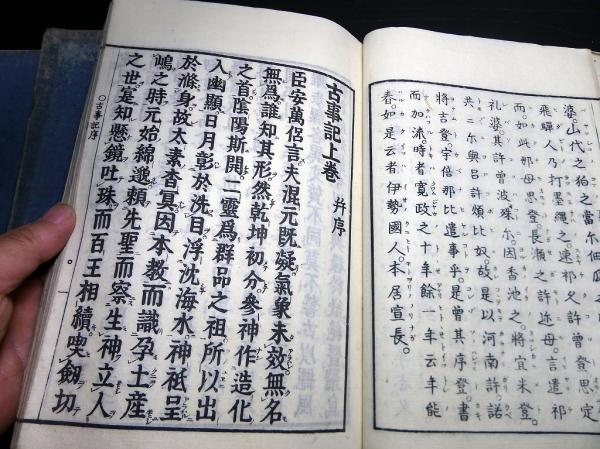 婆。山代之狛之當尓佃瓜
飛騨人乃打墨縄之。速祁久許曾登思定
而。如此那母思登。長瀬之許近母。言遣祁
礼婆。其許曾波。殊尓。因香池之。将宜米登。
共二尓興呂許頗比奴。故是以河南許。諾
将吉登。宇倍那比遣事乎。是曾其序登。書
而加流。時者寛政之十年餘一年云年能
春。如是云者伊勢國人。本居宣長。
古事記上巻 幷序
臣安萬侶言。夫混元既凝。氣象未效。無名
無爲。誰知其形。然乾坤初分。參神作造化
之首。陰陽斯開。二靈爲群品之祖。所以出
入幽顯。日月彰於洗目。浮沈海水。神祇呈
於滌身。故太素杳冥。因本教而識孕土產
嶋之時。元始綿邈。賴先聖而察生神立人
之世。寔知懸鏡吐珠。而百王相續。喫劔切
○古事記序